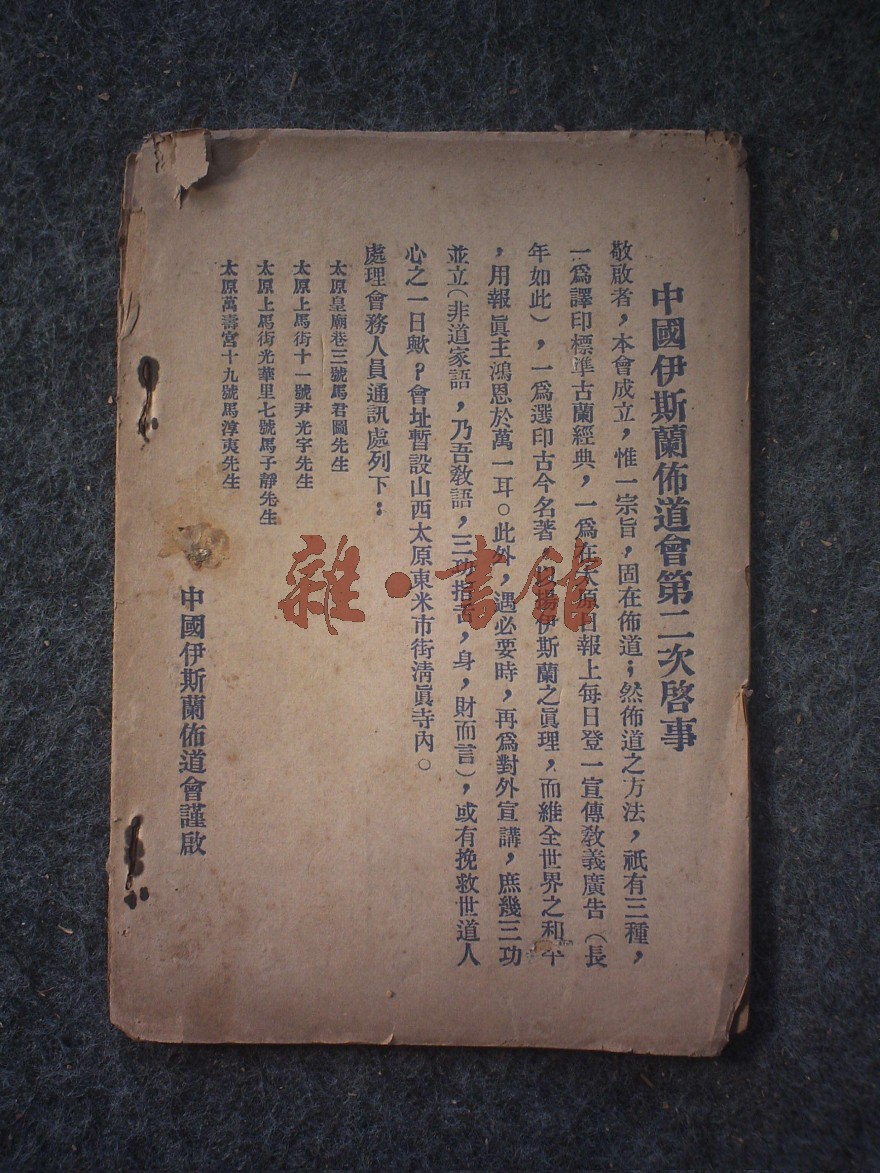 中國伊斯蘭佈道會第二次啓事
敬啟者，本會成立，惟一宗旨，固在佈道；然佈道之方法，祇有三種，
一爲譯印標準古蘭經典，一爲在太原日報上每日登一宣傳教義廣告（長
年如此），一爲選印古今名著，揚伊斯蘭之眞理，而維全世界之和平
，用報眞主鴻恩於萬一耳。此外，遇必要時，再爲對外宣講，庶幾三功
並立（非道家語，乃吾教語，三功指舌，身，財而言），或有挽救世道人
心之一日歟？會址暫設山西太原東米市街清眞寺內。
處理會務人員通訊處列下：
太原皇廟巷三號馬君圖先生
太原上馬街十一號尹光宇先生
太原上馬街光華里七號馬子靜先生
太原萬壽宮十九號馬淳夷先生
中國伊斯蘭佈道會謹啟
雜·書館